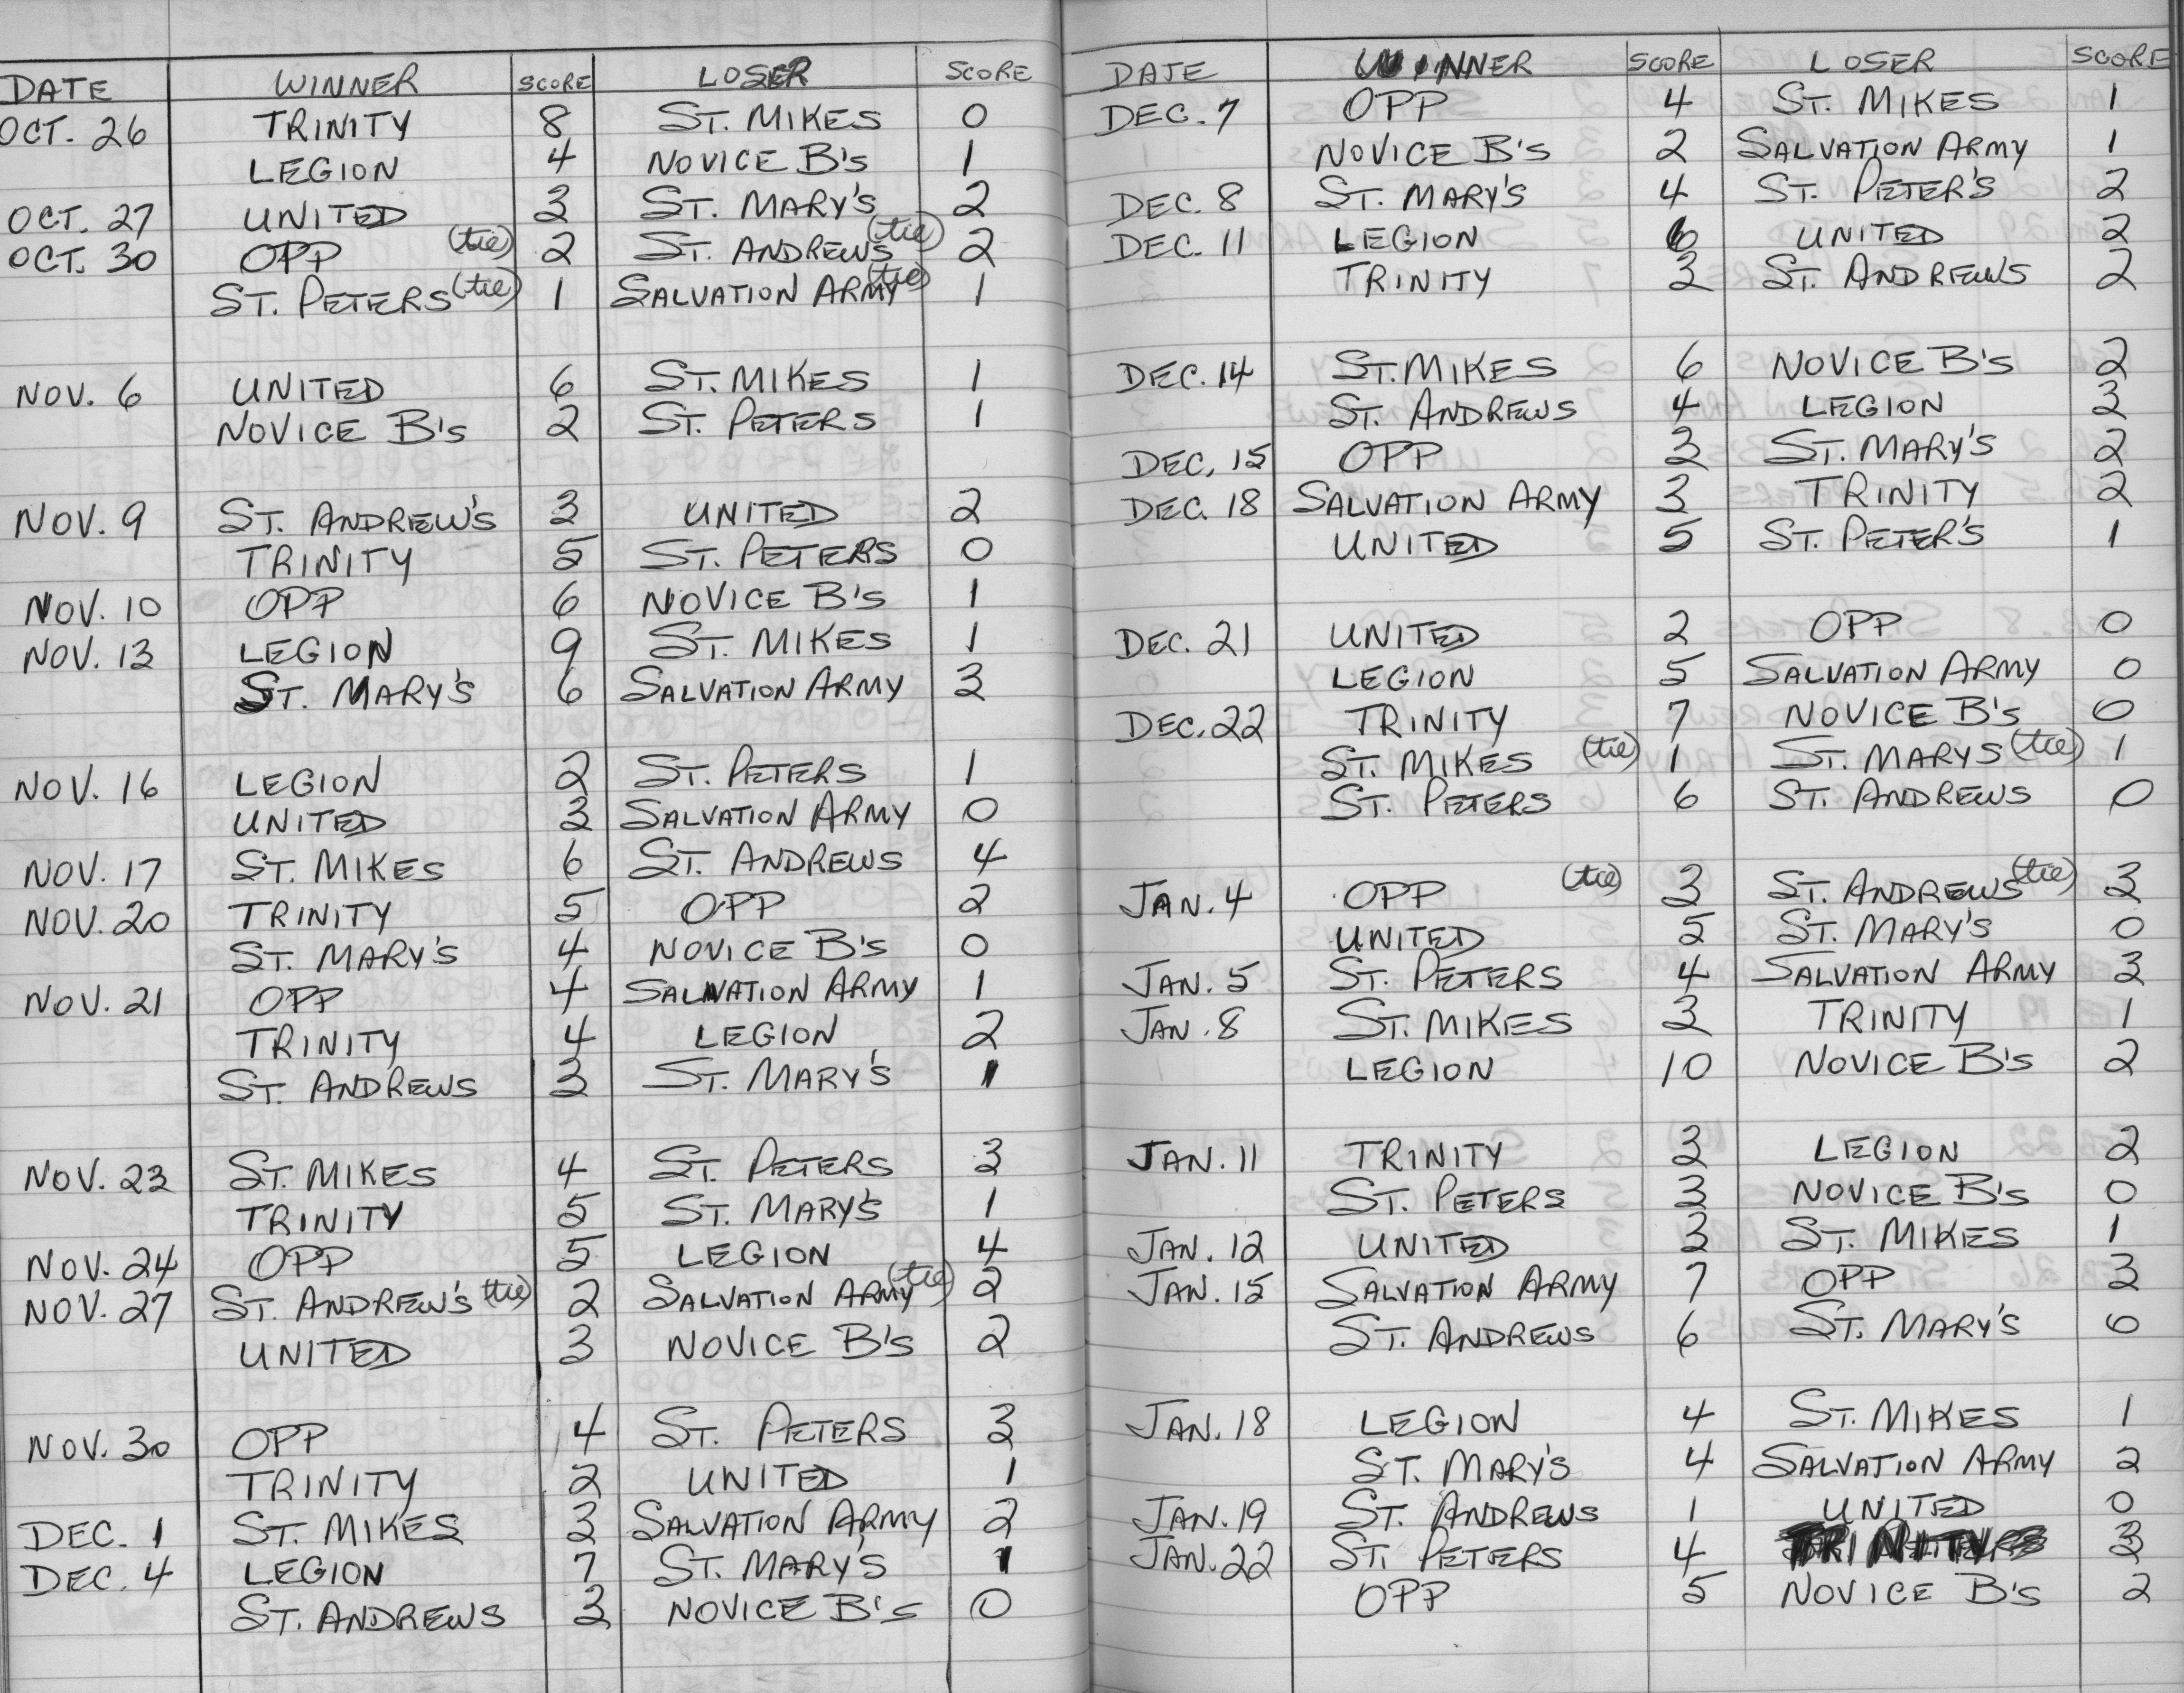 DATE WINNER SCORE LOSER SCORE
OCT. 26 TRINITY 8 ST. MIKES 0
LEGION 4 NOVICE B's 1
OCT. 27 UNITED 3 ST. MARY'S 2
OCT. 30 OPP (tie) 2 ST. ANDREWS (tie) 2
ST. PETERS (tie) 1 SALVATION ARMY (tie) 1
NOV. 6 UNITED 6 ST. MIKES 1
NOVICE B's 2 ST. PETERS 1
NOV. 9 ST. ANDREW'S 3 UNITED 2
TRINITY 5 ST. PETERS 0
NOV. 10 OPP 6 NOVICE B's 1
NOV. 13 LEGION 9 ST. MIKES 1
ST. MARY'S 6 SALVATION ARMY 3
NOV. 16 LEGION 2 ST. PETERS 1
UNITED 3 SALVATION ARMY 0
NOV. 17 ST. MIKES 6 ST. ANDREWS 4
NOV. 20 TRINITY 5 OPP 2
ST. MARY'S 4 NOVICE B's 0
NOV. 21 OPP 4 SALVATION ARMY 1
TRINITY 4 LEGION 2
ST. ANDREWS 3 ST. MARY'S 1
NOV. 23 ST. MIKES 4 ST. PETERS 3
TRINITY 5 ST. MARY'S 1
NOV. 24 OPP 5 LEGION 4
NOV. 27 ST. ANDREW'S (tie) 2 SALVATION ARMY (tie) 2
UNITED 3 NOVICE B's 2
NOV. 30 OPP 4 ST. PETERS 3
TRINITY 2 UNITED 1
DEC. 1 ST. MIKES 3 SALVATION ARMY 2
DEC. 4 LEGION 7 ST. MARY'S 1
ST. ANDREWS 3 NOVICE B's 0
DATE WINNER SCORE LOSER SCORE
DEC. 7 OPP 4 ST. MIKES 1
NOVICE B's 2 SALVATION ARMY 1
DEC. 8 ST. MARY'S 4 ST. PETER'S 2
DEC. 11 LEGION 6 UNITED 2
TRINITY 3 ST. ANDREWS 2
DEC. 14 ST. MIKES 6 NOVICE B's 2
ST. ANDREWS 4 LEGION 3
DEC. 15 OPP 3 ST. MARY'S 2
DEC. 18 SALVATION ARMY 3 TRINITY 2
UNITED 5 ST. PETER'S 1
DEC. 21 UNITED 2 OPP 0
LEGION 5 SALVATION ARMY 0
DEC. 22 TRINITY 7 NOVICE B's 0
ST. MIKES (tie) 1 ST. MARYS (tie) 1
ST. PETERS 6 ST. ANDREWS 0
JAN. 4 OPP (tie) 3 ST. ANDREWS (tie) 3
UNITED 5 ST. MARY'S 0
JAN. 5 ST. PETERS 4 SALVATION ARMY 3
JAN. 8 ST. MIKES 3 TRINITY 1
LEGION 10 NOVICE B's 2
JAN. 11 TRINITY 3 LEGION 2
ST. PETERS 3 NOVICE B's 0
JAN. 12 UNITED 3 ST. MIKES 1
JAN. 15 SALVATION ARMY 7 OPP 3
ST. ANDREWS 6 ST. MARY'S 0
JAN. 18 LEGION 4 ST. MIKES 1
ST. MARY'S 4 SALVATION ARMY 2
JAN. 19 ST. ANDREWS 1 UNITED 0
JAN. 22 ST. PETERS 4 TRINITY 3
OPP 5 NOVICE B's 2